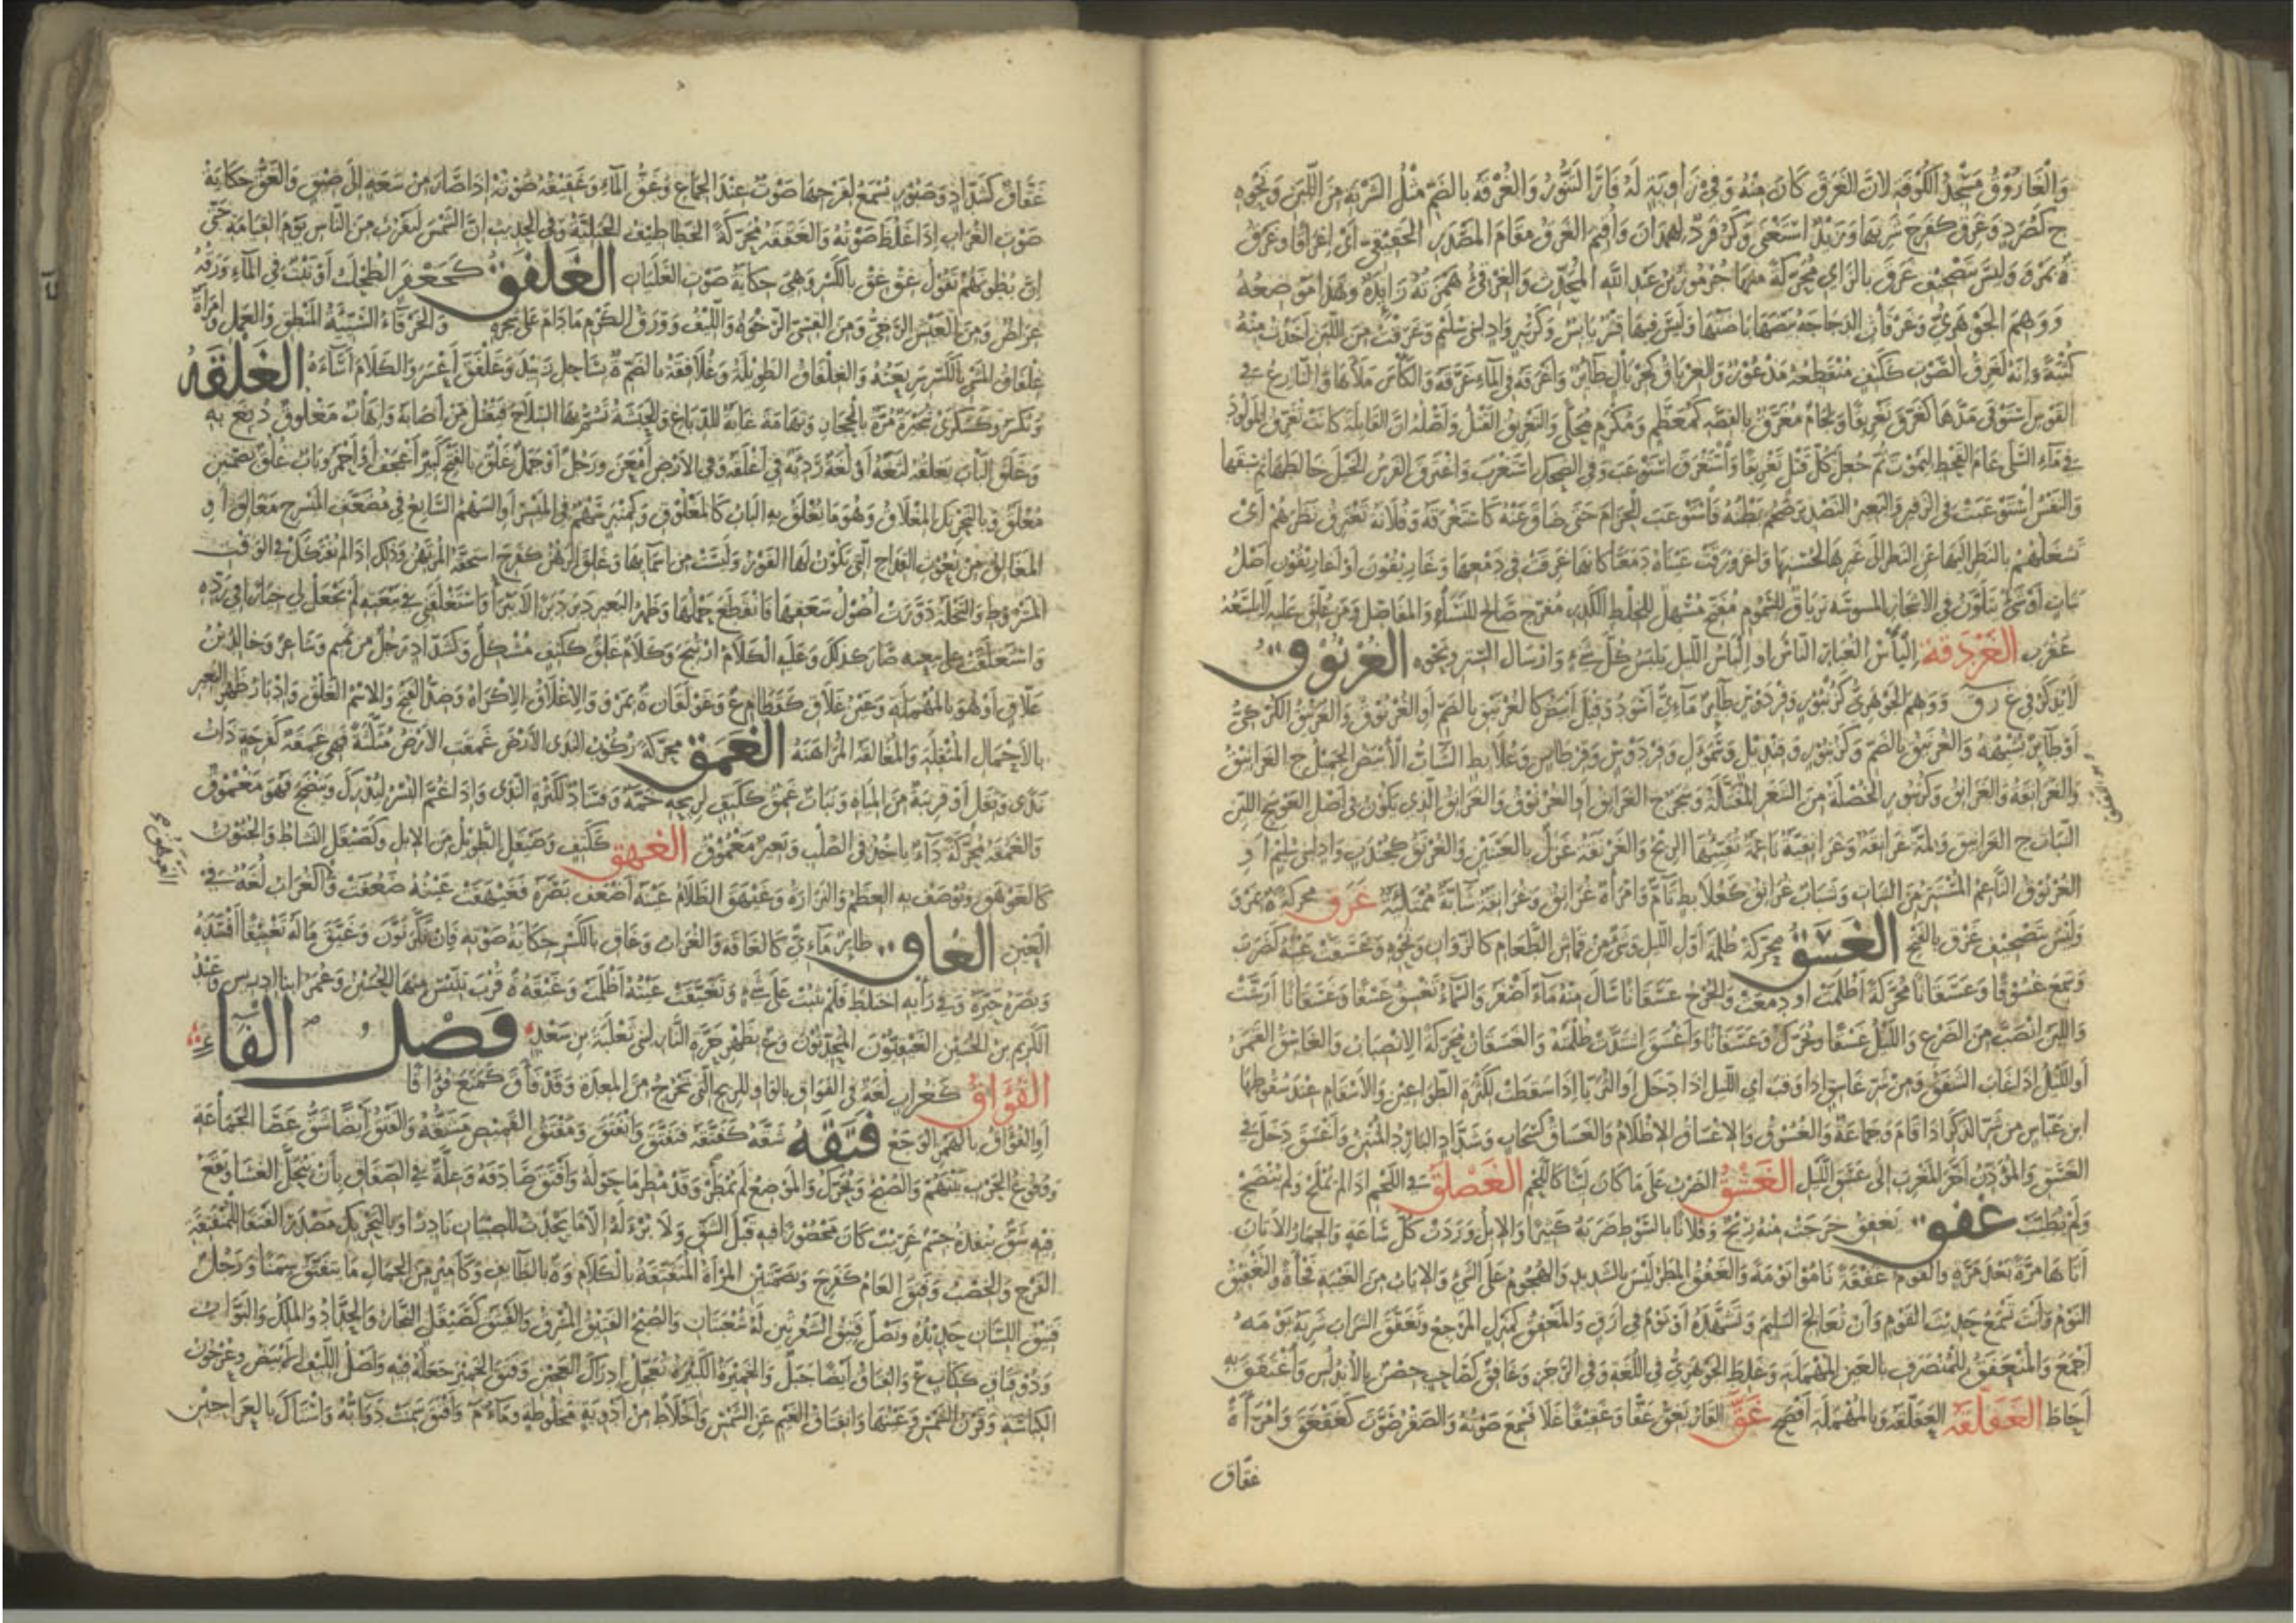 وَالْغَارُوقُ مَسْجِدُ الْكُوفَةِ لِأَنَّ الْغَرَقَ كَانَ مِنْهُ وَفِي زَاوِيَةٍ لَهُ فَارَ التَّنُّورُ وَالْغُرْقَةُ بِالضَّمِّ مِثْلُ الشَّرْبَةِ مِنَ اللَّبَنِ وَنَحْوِهِ
ج كَصُرَدٍ وَغَرِقَ كَفَرِحَ شَرِبَهَا وَزَيْدٌ اسْتَغْنَى وَكَزُفَرَ د لِهَمْدَانَ وَأُقِيمَ الْغَرَقُ مَقَامَ الْمَصْدَرِ الْحَقِيقِيِّ أَيْ إِغْرَاقًا وَغَرَقُ
ة بِمَرْوَ وَلَيْسَ تَصْحِيفَ غَزَقَ بِالزَّايِ مُحَرَّكَةً مِنْهَا جُرْمُوزُ بْنُ عَبْدِ اللَّهِ الْمُحَدِّثُ وَالْغِرْقِئُ هَمْزَتُهُ زَايِدَةٌ وَهَذَا مَوْضِعُهُ
وَوَهِمَ الْجَوْهَرِيُّ وَغَرْقَأَتِ الدَّجَاجَةُ بَيْضَهَا بَاضَتْهَا وَلَيْسَ فِيهَا قِشْرٌ يَابِسٌ وَكَزُبَيْرٍ وَادٍ لِبَنِي سُلَيْمٍ وَغَرِقْتُ مِنَ اللَّبَنِ أَخَذْتُ مِنْهُ
كُثْبَةً وَإِنَّهُ لَغَرِقُ الصَّوْتِ كَكَتِفٍ مُنْقَطِعُهُ مَذْعُورٌ وَالْغِرْيَاقُ كَجِرْيَالٍ طَائِرٌ وَأَغْرَقَهُ فِي الْمَاءِ غَرَّقَهُ وَالْكَأْسَ مَلَأَهَا وَالنَّازِعُ فِي
الْقَوْسِ اسْتَوْفَى مَدَّهَا كَغَرَّقَ تَغْرِيقًا وَلِجَامٌ مُغَرَّقٌ بِالْفِضَّةِ كَمُعَظَّمٍ وَمُكْرَمٍ مُحَلًّى وَالتَّغْرِيقُ الْقَتْلُ وَأَصْلُهُ أَنَّ الْقَابِلَةَ كَانَتْ تُغَرِّقُ الْمَوْلُودَ
فِي مَاءِ السَّلَى عَامَ الْقَحْطِ لِيَمُوتَ ثُمَّ جُعِلَ كُلُّ قَتْلٍ تَغْرِيقًا وَاسْتَغْرَقَ اسْتَوْعَبَ وَفِي الضَّحِكِ اسْتَغْرَبَ وَاغْتَرَقَ الْفَرَسُ الْخَيْلَ خَالَطَهَا ثُمَّ سَبَقَهَا
وَالنَّفَسَ اسْتَوْعَبَتْ فِي الزَّفِيرِ وَالْبَعِيرُ التَّصْدِيرَ ضَخُمَ بَطْنُهُ فَاسْتَوْعَبَ الْحِزَامَ حَتَّى ضَاقَ عَنْهُ كَاسْتَغْرَقَهُ وَفُلَانَةُ تَغْتَرِقُ نَظَرَهُمْ أَيْ
تَشْغَلُهُمْ بِالنَّظَرِ إِلَيْهَا عَنِ النَّظَرِ إِلَى غَيْرِهَا لِحُسْنِهَا وَاغْرَوْرَقَتْ عَيْنَاهُ دَمَعَتَا كَأَنَّهَا غَرِقَتْ فِي دَمْعِهَا وَغَارِيقُونُ أَوْ أَغَارِيقُونُ أَصْلُ
نَبَاتٍ أَوْ شَيْءٌ يَتَكَوَّنُ فِي الْأَشْجَارِ الْمُسَوَّسَةِ تِرْيَاقٌ لِلسُّمُومِ مُفَتِّحٌ مُسْهِلٌ لِلْخِلْطِ الْكَدِرِ مُفَرِّحٌ صَالِحٌ لِلنَّسَاءِ وَالْمَفَاصِلِ وَمَنْ عُلِّقَ عَلَيْهِ لَا تَلْسَعُهُ
عَقْرَبٌ الْغَرْدَقَةُ إِلْبَاسُ الْغُبَارِ النَّاسَ أَوْ إِلْبَاسُ اللَّيْلِ يَلْبَسُ كُلَّ شَيْءٍ وَإِرْسَالُ السِّتْرِ وَنَحْوِهِ الْغُرْنُوقُ
لَا يُذْكَرُ فِي غ ر ق وَوَهِمَ الْجَوْهَرِيُّ كَزُنْبُورٍ وَفِرْدَوْسٍ طَائِرٌ مَائِيٌّ أَسْوَدُ وَقِيلَ أَبْيَضُ كَالْغُرْنَيْقِ بِالضَّمِّ أَوِ الْغُرْنُوقُ وَالْغُرْنَيْقُ الْكُرْكِيُّ
أَوْ طَائِرٌ يُشْبِهُهُ وَالْغُرْنَيْقُ بِالضَّمِّ وَكَزُنْبُورٍ وَقِنْدِيلٍ وَسَمَوْءَلٍ وَفِرْدَوْسٍ وَقِرْطَاسٍ وَعُلَابِطٍ الشَّابُّ الْأَبْيَضُ الْجَمِيلُ ج الْغَرَانِيقُ
وَالْغَرَانِقَةُ وَالْغَرَانِقُ وَكَزُنْبُورٍ الْخُصْلَةُ مِنَ الشَّعَرِ الْمُفَتَّلَةُ وَشَجَرٌ ج الْغَرَانِقُ أَوِ الْغُرْنُوقُ وَالْغُرَانِقُ الَّذِي يَكُونُ فِي أَصْلِ الْعَوْسَجِ اللَّيِّنُ
النَّبَاتِ ج الْغَرَانِيقُ وَلِمَّةٌ غُرَانِقَةٌ وَغُرَانِقِيَّةٌ نَاعِمَةٌ تُفَيِّئُهَا الرِّيحُ وَالْغَرْنَقَةُ غَزَلٌ بِالْعَيْنَيْنِ وَالْغُرْنَقُ كَجُنْدَبٍ وَادٍ لِبَنِي سُلَيْمٍ أَوِ
الْغُرْنُوقُ النَّاعِمُ الْمُنْتَشِرُ مِنَ النَّبَاتِ وَشَبَابٌ غُرَانِقٌ كَعُلَابِطٍ تَامٌّ وَامْرَأَةٌ غُرَانِقٌ وَغُرَانِقَةٌ شَابَّةٌ مُمْتَلِئَةٌ غَزَقُ مُحَرَّكَةً ة بِمَرْوَ
وَلَيْسَ بِتَصْحِيفِ غَرْقَ بِالْفَتْحِ الْغَسَقُ مُحَرَّكَةً ظُلْمَةُ أَوَّلِ اللَّيْلِ وَشَيْءٌ مِنْ قُمَاشِ الطَّعَامِ كَالزُّوَانِ وَنَحْوِهِ وَغَسَقَتْ عَيْنُهُ كَضَرَبَ
وَسَمِعَ غُسُوقًا وَغَسَقَانًا مُحَرَّكَةً أَظْلَمَتْ أَوْ دَمَعَتْ وَالْجُرْحُ غَسَقَانًا سَالَ مِنْهُ مَاءٌ أَصْفَرُ وَالسَّمَاءُ تَغْسِقُ غَسْقًا وَغَسَقَانًا أَرَشَّتْ
وَاللَّبَنُ انْصَبَّ مِنَ الضَّرْعِ وَاللَّيْلُ غَسْقًا وَيُحَرَّكُ وَغَسَقَانًا وَأَغْسَقَ اشْتَدَّتْ ظُلْمَتُهُ وَالْغَسَقَانُ مُحَرَّكَةً الِانْصِبَابُ وَالْغَاسِقُ الْقَمَرُ
أَوِ اللَّيْلُ إِذَا غَابَ الشَّفَقُ وَمِنْ شَرِّ غَاسِقٍ إِذَا وَقَبَ أَيِ اللَّيْلِ إِذَا دَخَلَ أَوِ الثُّرَيَّا إِذَا سَقَطَتْ لِكَثْرَةِ الطَّوَاعِينِ وَالْأَسْقَامِ عِنْدَ سُقُوطِهَا
ابْنُ عَبَّاسٍ مِنْ شَرِّ الذَّكَرِ إِذَا قَامَ وَجَمَاعَةٌ وَالْغُسُوقُ وَالْإِغْسَاقُ الْإِظْلَامُ وَالْغَسَاقُ كَسَحَابٍ وَشَدَّادٍ الْبَارِدُ الْمُنْتِنُ وَأَغْسَقَ دَخَلَ فِي
الْغَسَقِ وَالْمُؤَذِّنُ أَخَّرَ الْمَغْرِبَ إِلَى غَسَقِ اللَّيْلِ الْغَشْقُ الضَّرْبُ عَلَى مَا كَانَ لَيِّنًا كَاللَّحْمِ الْغَصْلَقَةُ فِي اللَّحْمِ إِذَا لَمْ يُمْلَحْ وَلَمْ يُنْضَجْ
وَلَمْ يُطَيَّبْ غَفَقَ يَغْفِقُ خَرَجَتْ مِنْهُ رِيحٌ وَفُلَانًا بِالسَّوْطِ ضَرَبَهُ كَثِيرًا وَالْإِبِلُ وَرَدَتْ كُلَّ سَاعَةٍ وَالْحِمَارُ الْأَتَانَ
أَتَاهَا مَرَّةً بَعْدَ مَرَّةٍ وَالْقَوْمُ غَفْقَةً نَامُوا نَوْمَةً وَالْغَفْقُ الْمَطَرُ لَيْسَ بِالشَّدِيدِ وَالْهُجُومُ عَلَى الشَّيْءِ وَالْإِيَابُ مِنَ الْغَيْبَةِ فَجْأَةً وَالتَّغْفِيقُ
النَّوْمُ وَأَنْتَ تَسْمَعُ حَدِيثَ الْقَوْمِ وَأَنْ تُعَالِجَ السَّلِيمَ وَتُسَهِّدَهُ أَوْ نَوْمٌ فِي أَرَقٍ وَالْمَغْفِقُ كَمَنْزِلٍ الْمَرْجِعُ وَتَغَفَّقَ الشَّرَابَ شَرِبَهُ يَوْمَهُ
أَجْمَعَ وَالْمُنْغَفَقُ لِلْمُنْصَرَفِ بِالْعَيْنِ الْمُهْمَلَةِ وَغَلِطَ الْجَوْهَرِيُّ فِي اللُّغَةِ وَفِي الرَّجَزِ وَغَافِقٌ كَصَاحِبٍ حِصْنٌ بِالْأَنْدَلُسِ وَاغْتَفَقَ بِهِ
أَحَاطَ الْغَفَلَّقَةُ الْعَفَلَّقَةُ وَبِالْمُهْمَلَةِ أَفْصَحُ غَقَّ الْقَارُ يَغِقُّ غَقًّا وَغَقِيقًا غَلَا فَسُمِعَ صَوْتُهُ وَالصَّقْرُ صَوَّتَ كَغَقْغَقَ وَامْرَأَةٌ
غقاق
غَقَّاقٌ كَشَدَّادٍ وَصَبُورٍ يُسْمَعُ لِفَرْجِهَا صَوْتٌ عِنْدَ الْجِمَاعِ وَغَقُّ الْمَاءِ وَغَقِيقُهُ صَوْتُهُ إِذَا صَارَ مِنْ سَعَةٍ إِلَى ضِيقٍ وَالْغَقُّ حِكَايَةُ
صَوْتِ الْغُرَابِ إِذَا غَلُظَ صَوْتُهُ وَالْغَقَقَةُ مُحَرَّكَةً الْخَطَاطِيفُ الْجَبَلِيَّةُ وَفِي الْحَدِيثِ إِنَّ الشَّمْسَ لَتَقْرُبُ مِنَ النَّاسِ يَوْمَ الْقِيَامَةِ حَتَّى
إِنَّ بُطُونَهُمْ تَقُولُ غِقْ غِقْ بِالْكَسْرِ وَهِيَ حِكَايَةُ صَوْتِ الْغَلَيَانِ الْغَلْفَقُ كَجَعْفَرٍ الطُّحْلُبُ أَوْ نَبْتٌ فِي الْمَاءِ وَرَقُهُ
عِرَاضٌ وَمِنَ الْعَيْشِ الرَّخِيُّ وَمِنَ الْقِسِيِّ الرِّخْوَةُ وَاللِّيفُ وَوَرَقُ الْكَرْمِ مَا دَامَ عَلَى شَجَرِهِ وَالْخَرْقَاءُ السَّيِّئَةُ الْمَنْطِقِ وَالْعَمَلِ وَامْرَأَةٌ
غِلْفَاقُ الْمَشْيِ بِالْكَسْرِ سَرِيعَتُهُ وَالْغِلْفَاقُ الطَّوِيلَةُ وَغُلَافِقَةُ بِالضَّمِّ ة بِسَاحِلِ زَبِيدَ وَغَلْفَقَ أَعْسَرَ وَالْكَلَامَ أَسَاءَهُ الْغَلْقَةُ
وَتُكْسَرُ وَكَسَكْرَى شُجَيْرَةٌ مُرَّةٌ بِالْحِجَازِ وَتِهَامَةَ غَايَةٌ لِلدِّبَاغِ وَالْحَبَشَةُ تَسُمُّ بِهَا السِّلَاحَ فَيَقْتُلُ مَنْ أَصَابَهُ وَإِهَابٌ مَغْلُوقٌ دُبِغَ بِهِ
وَغَلَقَ الْبَابَ يَغْلِقُهُ لُثْغَةٌ أَوْ لُغَةٌ رَدِيئَةٌ فِي أَغْلَقَهُ وَفِي الْأَرْضِ أَمْعَنَ وَرَجُلٌ أَوْ جَمَلٌ غَلْقٌ بِالْفَتْحِ كَبِيرٌ أَعْجَفُ أَوْ أَحْمَرُ وَبَابٌ غُلُقٌ بِضَمَّتَيْنِ
مُغْلَقٌ وَبِالتَّحْرِيكِ الْمِغْلَاقُ وَهُوَ مَا يُغْلَقُ بِهِ الْبَابُ كَالْمُغْلُوقِ وَكَمِنْبَرٍ سَهْمٌ فِي الْمَيْسِرِ أَوِ السَّهْمُ السَّابِعُ فِي مُضَعَّفِ الْمَيْسِرِ ج مَغَالِقُ أَوِ
الْمَغَالِقُ مِنْ نُعُوتِ الْقِدَاحِ الَّتِي يَكُونُ لَهَا الْفَوْزُ وَلَيْسَتْ مِنْ أَسْمَائِهَا وَغَلِقَ الرَّهْنُ كَفَرِحَ اسْتَحَقَّهُ الْمُرْتَهِنُ وَذَلِكَ إِذَا لَمْ يُفْتَكَكْ فِي الْوَقْتِ
الْمَشْرُوطِ وَالنَّخْلَةُ دَوَّدَتْ أُصُولُ سَعَفِهَا فَانْقَطَعَ حَمْلُهَا وَظَهْرُ الْبَعِيرِ دَبِرَ دَبَرًا لَا يَبْرَأُ وَاسْتَغْلَقَنِي فِي بَيْعَتِهِ لَمْ يَجْعَلْ لِي خِيَارًا فِي رَدِّهِ
وَاسْتَغْلَقَتْ عَلَيَّ بَيْعَتُهُ صَارَ كَذَلِكَ وَعَلَيْهِ الْكَلَامُ ارْتُتِجَ وَكَلَامٌ غَلِقٌ كَكَتِفٍ مُشْكِلٌ وَكَشَدَّادٍ رَجُلٌ مِنْ تَمِيمٍ وَشَاعِرٌ وَخَالِدُ بْنُ
غَلَّاقٍ أَوْ هُوَ بِالْمُهْمَلَةِ وَعَيْنُ غَلَاقِ كَقَطَامِ ع وَغَوْلَقَانُ ة بِمَرْوَ وَالْإِغْلَاقُ الْإِكْرَاهُ وَضِدُّ الْفَتْحِ وَالِاسْمُ الْغَلْقُ وَإِدْبَارُ ظَهْرِ الْبَعِيرِ
بِالْأَحْمَالِ الْمُثْقِلَةِ وَالْمُغَالَقَةُ الْمُرَاهَنَةُ الْغَمَقُ مُحَرَّكَةً رُكُوبُ النَّدَى الْأَرْضَ غَمِقَتِ الْأَرْضُ مُثَلَّثَةً فَهِيَ غَمِقَةٌ كَفَرِحَةٍ ذَاتُ
نَدًى وَثِقَلٍ أَوْ قَرِيبَةٌ مِنَ الْمِيَاهِ وَنَبَاتٌ غَمِقٌ كَكَتِفٍ لِرِيحِهِ خَمَّةٌ وَفَسَادٌ لِكَثْرَةِ النَّدَى وَإِذَا غُمَّ الْبُسْرُ لِيُدْرِكَ وَيَنْضَجَ فَهُوَ مَغْمُوقٌ
وَالْغَمَقَةُ مُحَرَّكَةً دَاءٌ يَأْخُذُ فِي الصُّلْبِ وَبَعِيرٌ مَغْمُوقٌ الْغَهِقُ كَكَتِفٍ وَصَيْقَلٍ الطَّوِيلُ مِنَ الْإِبِلِ وَكَصَيْقَلٍ النَّشَاطُ وَالْجُنُونُ
كَالْغَوْهَقِ وَيُوصَفُ بِهِ الْعِظَمُ وَالتَّرَارَةُ وَغَيْهَقَ الظَّلَامُ عَيْنَهُ أَضْعَفَ بَصَرَهُ فَغَيْهَقَتْ عَيْنُهُ ضَعُفَتْ وَالْغُرَابُ لُغَةٌ فِي
الْعَيْنِ الْغَاقُ طَائِرٌ مَائِيٌّ كَالْغَاقَةِ وَالْغُرَابُ وَغَاقِ بِالْكَسْرِ حِكَايَةُ صَوْتِهِ فَإِنْ نُكِّرَ نُوِّنَ وَغَيَّقَ مَالَهُ تَغْيِيقًا أَفْسَدَهُ
وَبَصَرَهُ حَيَّرَهُ وَفِي رَأْيِهِ اخْتَلَطَ فَلَمْ يَثْبُتْ عَلَى شَيْءٍ وَتَغَيَّقَتْ عَيْنُهُ أَظْلَمَتْ وَغَيْقَةُ ة قُرْبَ بِلْبَيْسَ مِنْهَا الْحُسَيْنُ وَعُمَرُ ابْنَا إِدْرِيسَ وَعَبْدُ
الْكَرِيمِ بْنُ الْحُسَيْنِ الْغَيْقِيُّونَ الْمُحَدِّثُونَ وَع بِظَهْرِ حَرَّةِ النَّارِ لِبَنِي ثَعْلَبَةَ بْنِ سَعْدٍ فَصْلُ الْفَاءِ
الْفُؤَاقُ كَغُرَابٍ لُغَةٌ فِي الْفُوَاقِ بِالْوَاوِ لِلرِّيحِ الَّتِي تَخْرُجُ مِنَ الْمَعِدَةِ وَقَدْ فَأَقَ كَمَنَعَ فُؤَاقًا
أَوِ الْفُؤَاقُ بِالْهَمْزِ الْوَجَعُ فَتَقَهُ شَقَّهُ كَفَتَّقَهُ فَتَفَتَّقَ وَانْفَتَقَ وَمَفْتَقُ الْقَمِيصِ مَشَقُّهُ وَالْفَتْقُ أَيْضًا شَقُّ عَصَا الْجَمَاعَةِ
وَوُقُوعُ الْحَرْبِ بَيْنَهُمْ وَالصُّبْحُ وَيُحَرَّكُ وَالْمَوْضِعُ لَمْ يُمْطَرْ وَقَدْ مُطِرَ مَا حَوْلَهُ وَأَفْتَقَ صَادَفَهُ وَعِلَّةٌ فِي الصِّفَاقِ بِأَنْ يَنْحَلَّ الْغِشَاءُ وَيَقَعَ
فِيهِ شَيْءٌ يُنْفِذُهُ جِسْمٌ غَرِيبٌ كَانَ مَحْصُورًا فِيهِ قَبْلَ الشَّقِّ وَلَا بُرْءَ لَهُ إِلَّا مَا يَحْدُثُ لِلصِّبْيَانِ نَادِرًا وَبِالتَّحْرِيكِ مَصْدَرُ الْفَتْقَاءِ لِلْمُنْفَتِقَةِ
الْفَرْجِ وَالْخِصْبُ وَفَتِقَ الْعَامُ كَفَرِحَ وَبِضَمَّتَيْنِ الْمَرْأَةُ الْمُتَفَتِّقَةُ بِالْكَلَامِ وَة بِالطَّائِفِ وَكَأَمِيرٍ مِنَ الْجِمَالِ مَا يَتَفَتَّقُ سِمَنًا وَرَجُلٌ
فَتِيقُ اللِّسَانِ حَدِيدُهُ وَنَصْلٌ فَتِيقُ الشَّفْرَتَيْنِ لَهُ شُعْبَتَانِ وَالصُّبْحُ الْفَتِيقُ الْمُشْرِقُ وَالْفَيْتَقُ كَصَيْقَلٍ النَّجَّارُ وَالْحَدَّادُ وَالْمَلِكُ وَالْبَوَّابُ
وَذُو فِتَاقٍ كَكِتَابٍ ع وَالْفِتَاقُ أَيْضًا جَبَلٌ وَالْخَمِيرَةُ الْكَبِيرَةُ تُعَجِّلُ إِدْرَاكَ الْعَجِينِ وَفَتَقَ الْعَجِينَ جَعَلَهُ فِيهِ وَأَصْلُ اللِّيفِ الْأَبْيَضِ وَعُرْجُونُ
الْكِبَاسَةِ وَقَرْنُ الشَّمْسِ وَعَيْنُهَا وَانْفِتَاقُ الْغَيْمِ عَنِ الشَّمْسِ وَأَخْلَاطٌ مِنْ أَدْوِيَةٍ مَخْلُوطَةٍ وَمَاءٌ م وَأَفْتَقَ سَمِنَتْ دَوَابُّهُ وَاسْتَاكَ بِالْعَرَاجِينِ